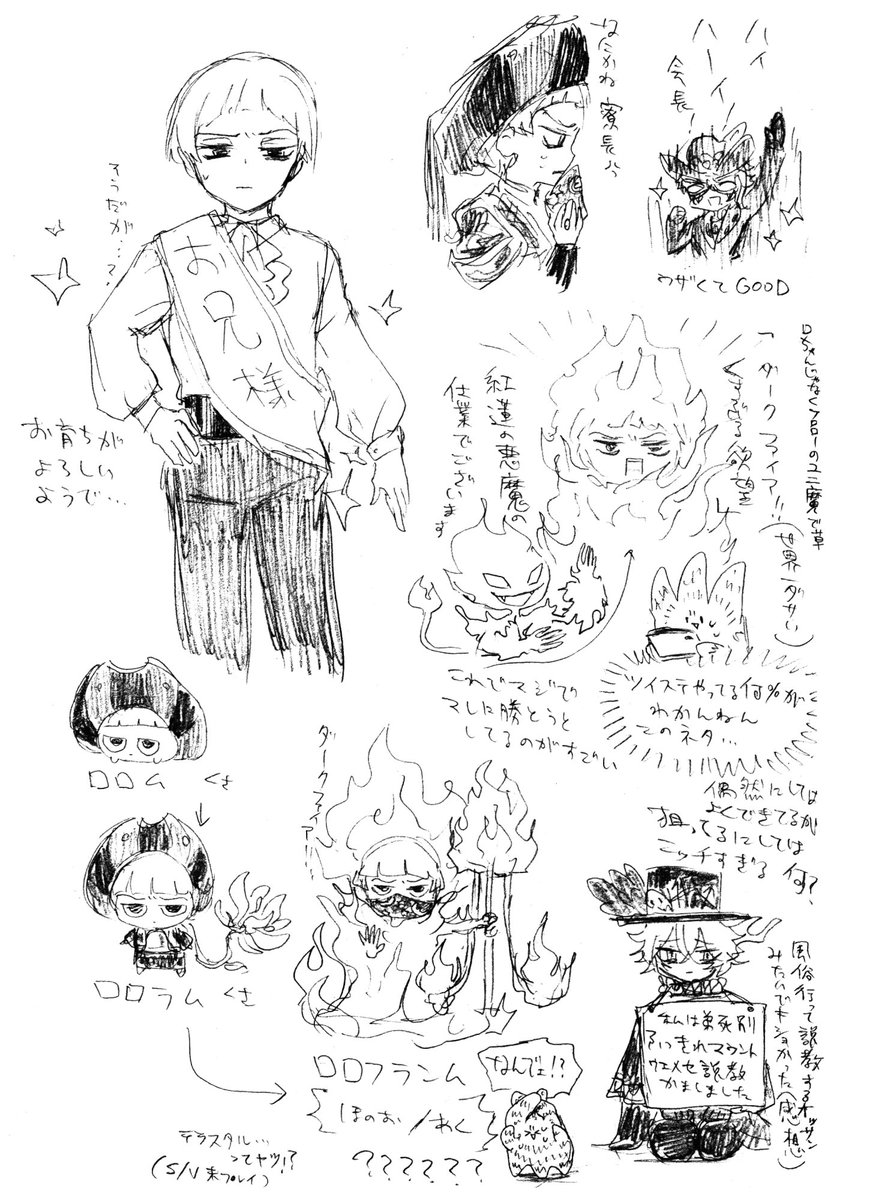 そうだが…?
お兄様
お育ちが
よろしい
ようで…
なにかね寮長
ハイ
ハーイ!
会長
ウザくて GOOD
ロちゃんじゃなくフロローのユニ魔で草
「ダークファイア!!
欲望」
(世界一ダサい)
紅蓮の悪魔の
仕業でございます
これでマジで
マレに勝とうと
してるのがすごい
ツイステやってる何%が
わかんねん
このネタ…
偶然にしては
よくできてるが
狙ってるにしては
ニッチすぎる
何?
ロロム
ロロラム
ダークファイア!!
ロロフランム
ほのお/あく
なんでェ!?
??????
テラスタル…
ってヤツ!?
(S/V未プレイ)
私は弟死別
マウント
ウエメセ説教
かましました
風俗行って説教するオッサン
みたいでキショかった(感想)